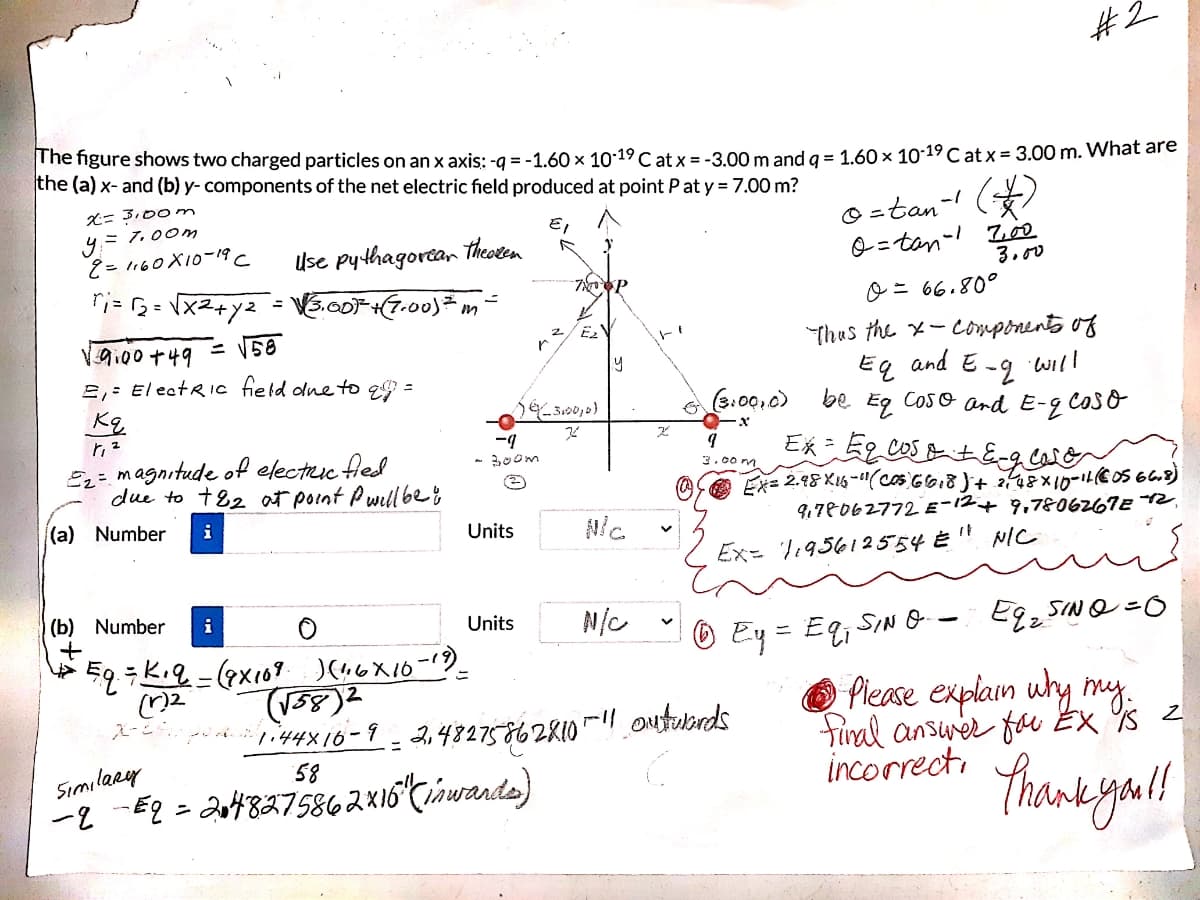 #2
The figure shows two charged particles on an x axis: -q = -1.60 × 10-19 C at x = -3.00 m and q = 1.60 × 10-19 C at x = 3.00 m. What are
the (a) x- and (b) y- components of the net electric field produced at point P at y = 7.00 m?
x = 3.00 m
y = 7.00 m
q = 1.60 X10-19 C
Use pythagorean Theorem
r1 = r2 = √x2+y2 = √(3.00)2+(7.00)2 m =
√9.00 + 49 = √58
E1 = Electric field due to q =
Kq
r1 2
E2 = magnitude of electric fied
due to +q2 at point P will be:
E1
y
7.00 P
E2
r2
r1
y
(-3.00,0)
θ (3.00,0)
x
-q
x
x
q
-3.00m
3.00m
θ = tan-1 (y/x)
θ = tan-1 7.00
3.00
θ = 66.80°
Thus the x - components of
Eq and E-q will
be Eq Cosθ and E-q Cosθ
Ex = Eq cosθ + E-q cosθ
(a) Ex= 2.48 X10-11 (cos 66.8) + 2.48 X10-11 (cos 66.8)
9.78062772 E-12 + 9.7806267E-12
Ex= 1.95612554 E" N/C
(a) Number i
Units N/C
(b) Number i 0
Units N/C
(b) Ey = Eq1 SIN θ - Eq2 SIN θ = 0
+
Eq = K.q = (9X109 )(1.6X10-19) =
(r)2 (√58)2
1.44X10-9 = 2.48275862X10-11 outwards
58
Similarly
-q -Eq = 2.48275862X10-11 (inwards)
Please explain why my
final answer for Ex is
incorrect.
Thank you!!